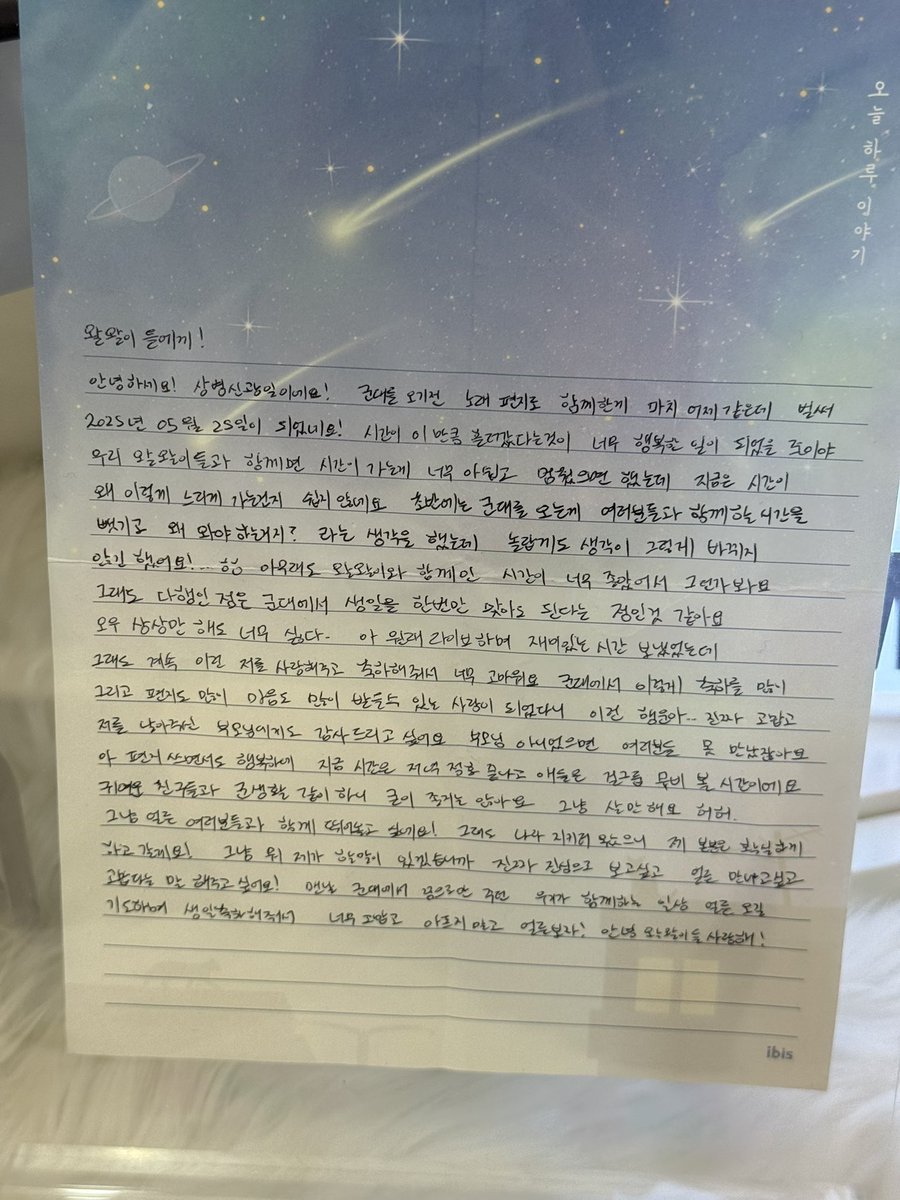 오늘 하루 이야기
왈왈이 들에게!
안녕하세요! 상병신광일이에요! 군대를 오기전 노래 편지로 함께한게 마치 어제 같은데 벌써
2025년 05월 25일이 되었네요! 시간이 이 만큼 흘러갔다는것이 너무 행복한 일이 되었을 줄이야
우리 왈왈이들과 함께면 시간이 가는게 너무 아쉽고 멈췄으면 했는데 지금은 시간이
왜 이렇게 느리게 가는건지 쉽지 않네요 초반에는 군대를 오는게 여러분들과 함께 하는 시간을
뺏기고 왜 와야 하는거지? 라는 생각을 했는데 놀랍게도 생각이 그렇게 바뀌지
않긴 했어요!... 아무래도 왈왈이와 함께인 시간이 너무 좋았어서 그런가 봐요
그래도 다행인 점은 군대에서 생일을 한번만 맞아도 된다는 점인것 같아요
오우 상상만 해도 너무 싫다- 아 원래 라이브 하며 재미있는 시간 보냈었는데
그래도 계속 이런 저를 사랑해주고 축하해줘서 너무 고마워요 군대에서 이렇게 축하를 많이
그리고 편지도 많이 마음도 많이 받을수 있는 사람이 되었다니 이런 행운아.. 진짜 고맙고
저를 낳아주신 부모님에게도 감사 드리고 싶어요 부모님 아니었으면 여러분들 못 만났잖아요
아 편지 쓰면서도 행복하네 지금 시간은 저녁 점호 끝나고 애들은 걸그룹 무비 볼 시간이에요
귀여운 친구들과 군생활 같이 하니 굳이 좋지는 않아요 그냥 살만 해요 허허.
그냥 얼른 여러분들과 함께 뛰어놀고 싶네요! 그래도 나라 지키러 왔으니 제 본분은 확실히 하기
하고 갈게요! 그냥 뭐 제가 할말이 있겠습니까 진짜 진심으로 보고싶고 얼른 만나고싶고
고맙다는 말 해주고 싶어요! 맨날 군대에서 꿈으로만 우리가 함께하는 일상 얼른 오길
기도하며 생일축하해줘서 너무 고맙고 아프지 말고 얼른보자! 안녕 왈왈이들 사랑해!
ibis